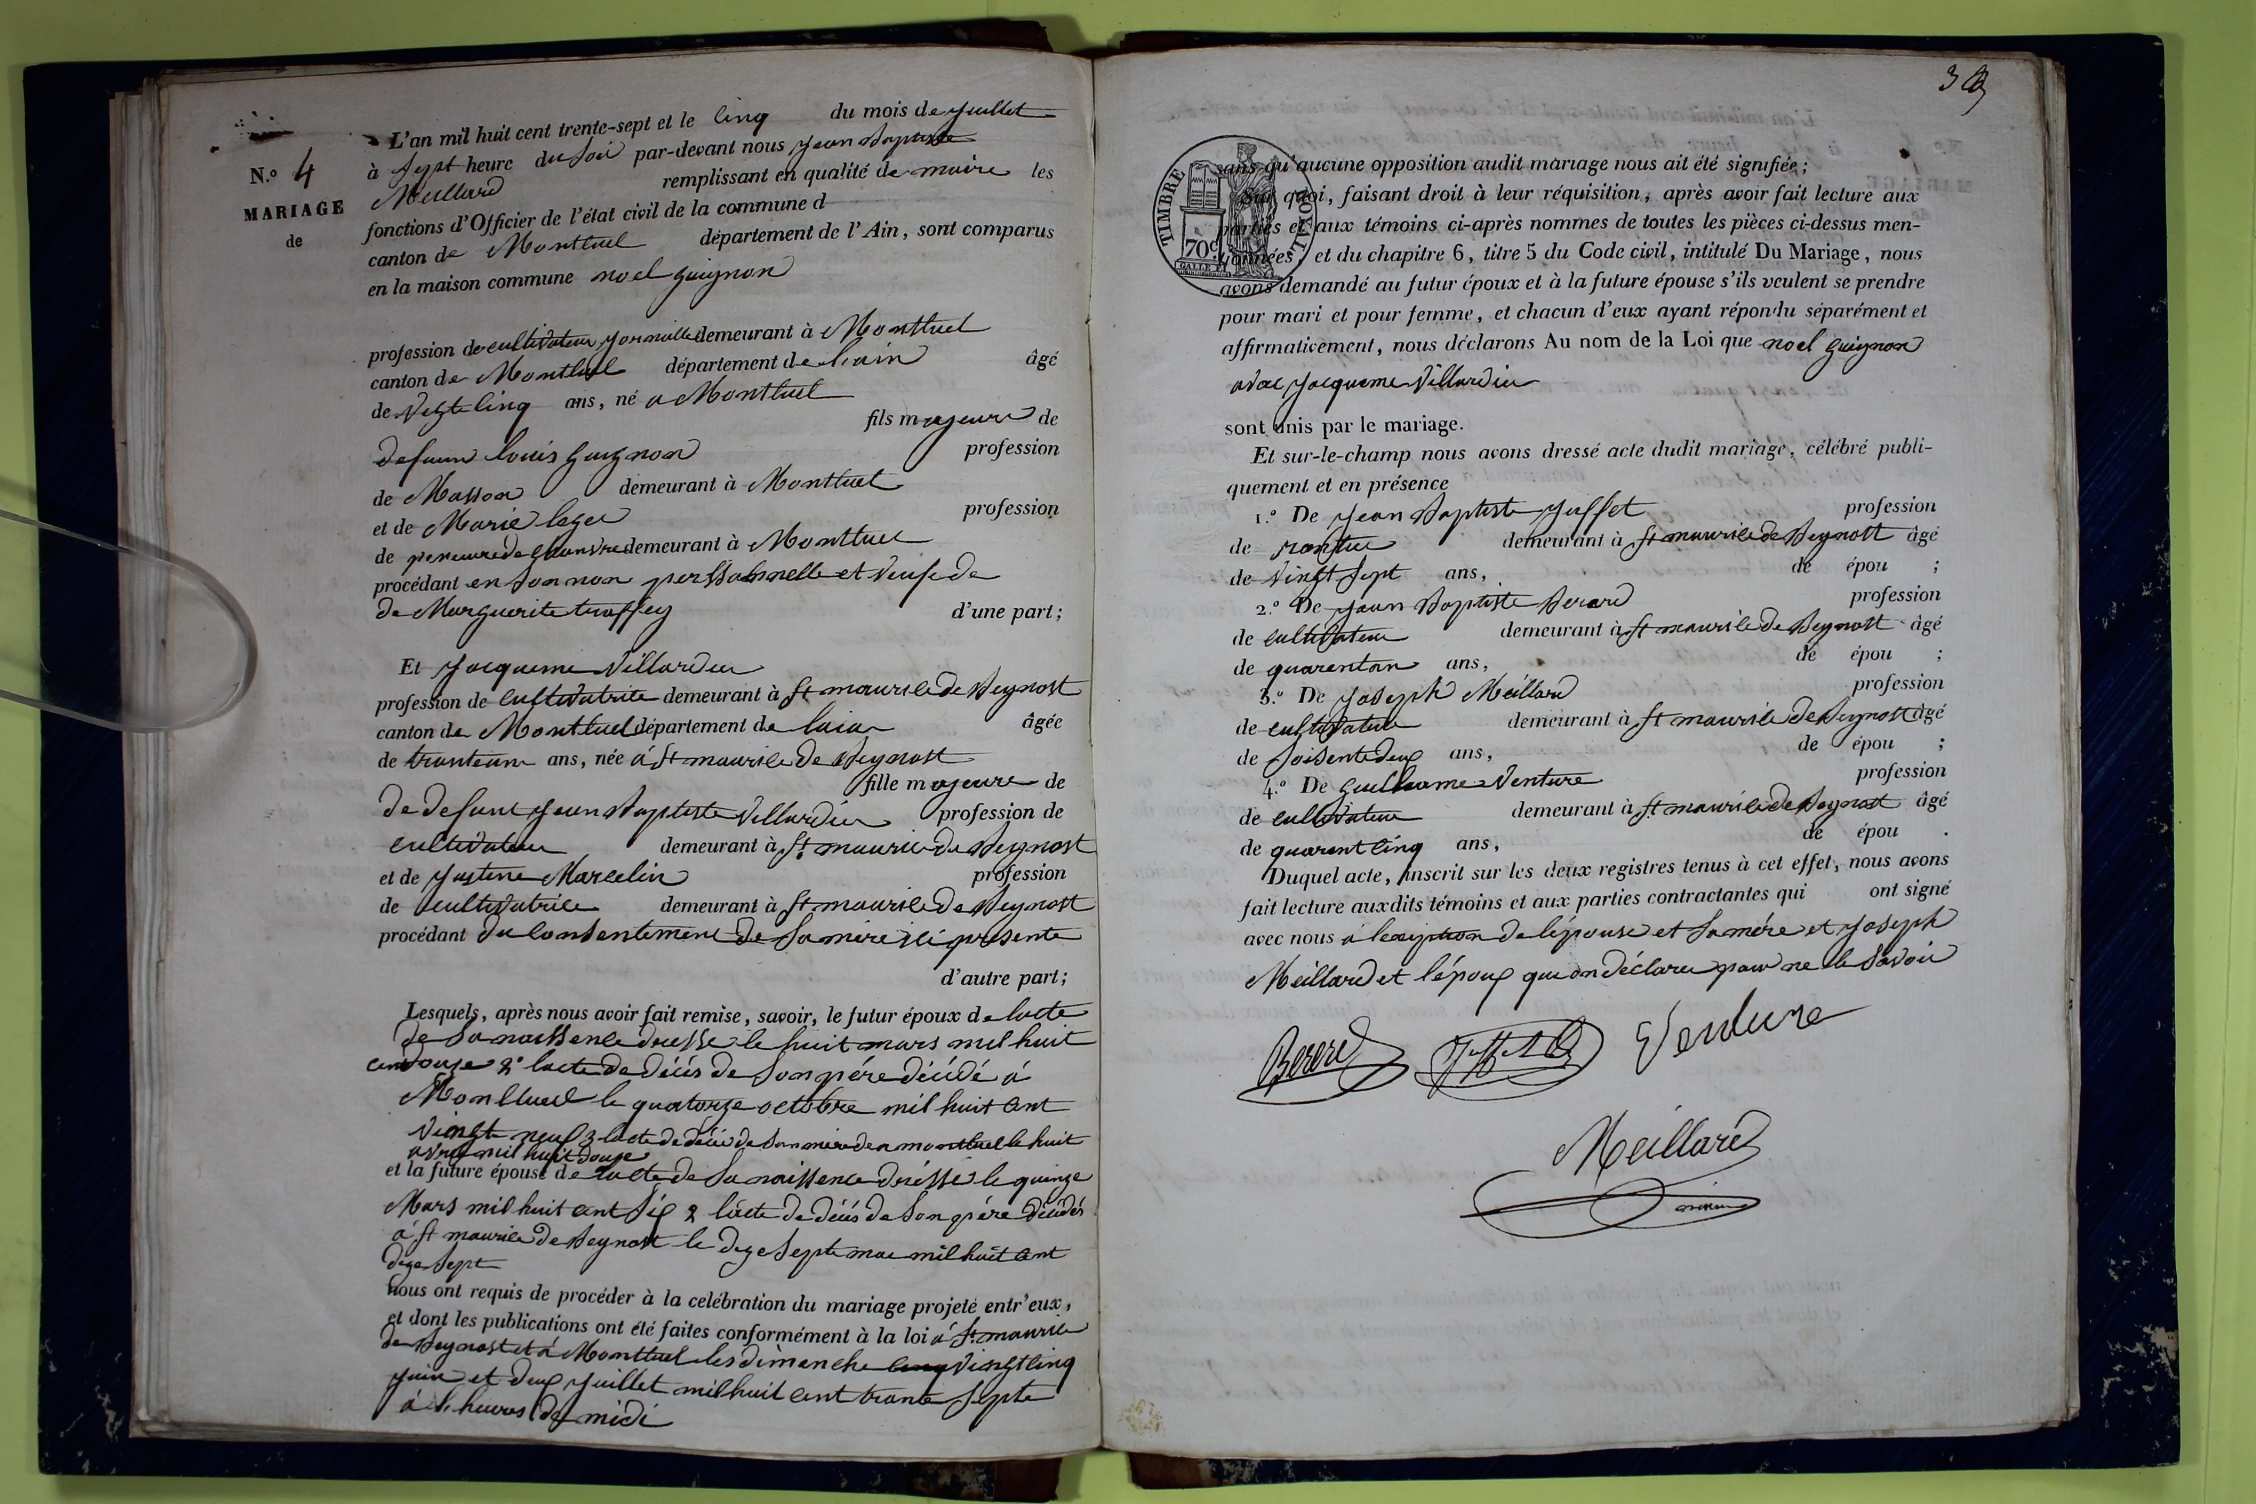 N.o 4
MARIAGE
de
L'an mil huit cent trente-sept et le cinq du mois de juillet
à sept heure du soir par-devant nous jean baptiste
Meillard remplissant en qualité de maire les
fonctions d'Officier de l'état civil de la commune d
canton de Montluel département de l'Ain, sont comparus
en la maison commune noel guignon
profession de cultivateur demeurant à Montluel
canton de Montluel département de lain âgé
de vingt cinq ans, né a Montluel
fils majeur de
defunt louis guignon profession
de Masson demeurant à Montluel
et de Marie leger profession
de demeurant à Montluel
procédant en son non perssonnelle et veufe de
de Marguerite truffey d'une part;
Et jacqueme villardier
profession de cultivatrice demeurant à st maurice de Beynost
canton de Montluel département de lain âgée
de tranteun ans, née à st maurice de Beynost
fille majeure de
de defunt jean baptiste villardier profession de
cultivateur demeurant à st maurice de Beynost
et de justine Marcelin profession
de cultivatrice demeurant à st maurice de Beynost
procédant du consentement de sa mère ici présente
d'autre part;
Lesquels, après nous avoir fait remise, savoir, le futur époux de lacte
de sa naissence dressé le huit mars mil huit
cent douze 2° lacte de décès de son père décédé à
Montluel le quatorze octobre mil huit cent
vingt neuf 3 lacte de décé de san mère de a montluel le huit
avril mil huit douze
et la future épouse de lacte de sa naissence dressé le quinze
Mars mil huit cent six 2 lacte de décés de son père décédés
à st maurice de Beynost le dize septe mae mil huit cent
dize sept
nous ont requis de procéder à la celébration du mariage projeté entr'eux,
et dont les publications ont été faites conformément à la loi à st maurice
de Beynost et à Montluel les dimanche cinq vingt cinq
juin et deux juillet mil huit cent trante septe
à heures de midi
TIMBRE ROYAL
70c
sans qu'aucune opposition audit mariage nous ait été signifiée;
Sur quoi, faisant droit à leur réquisition, après avoir fait lecture aux
parties et aux témoins ci-après nommes de toutes les pièces ci-dessus men-
tionnées, et du chapitre 6, titre 5 du Code civil, intitulé Du Mariage, nous
avons demandé au futur époux et à la future épouse s'ils veulent se prendre
pour mari et pour femme, et chacun d'eux ayant répondu séparément et
affirmativement, nous déclarons Au nom de la Loi que noel guignon
avec jacqueme villardier
sont unis par le mariage.
Et sur-le-champ nous avons dressé acte dudit mariage, célébré publi-
quement et en présence
1.o De jean baptiste juffet profession
de rantier demeurant à st maurice de Beynost âgé
de vingt sept ans, de épou ;
2.o De jean baptiste Berard profession
de cultivateur demeurant à st maurice de Beynost âgé
de quarentan ans, de épou ;
3.o De joseph Meillard profession
de cultivateur demeurant à st maurice de Beynost âgé
de soisente deux ans, de épou ;
4.o De guillaume Venture profession
de cultivateur demeurant à st maurice de Beynost âgé
de quarent cinq ans, de épou .
Duquel acte, inscrit sur les deux registres tenus à cet effet, nous avons
fait lecture auxdits témoins et aux parties contractantes qui ont signé
avec nous à lexeption de lépouse et sa mére et joseph
Meillard et lépoux qui on déclaré pour ne le savoir
Bererd Juffet Venture
Meillard
maire